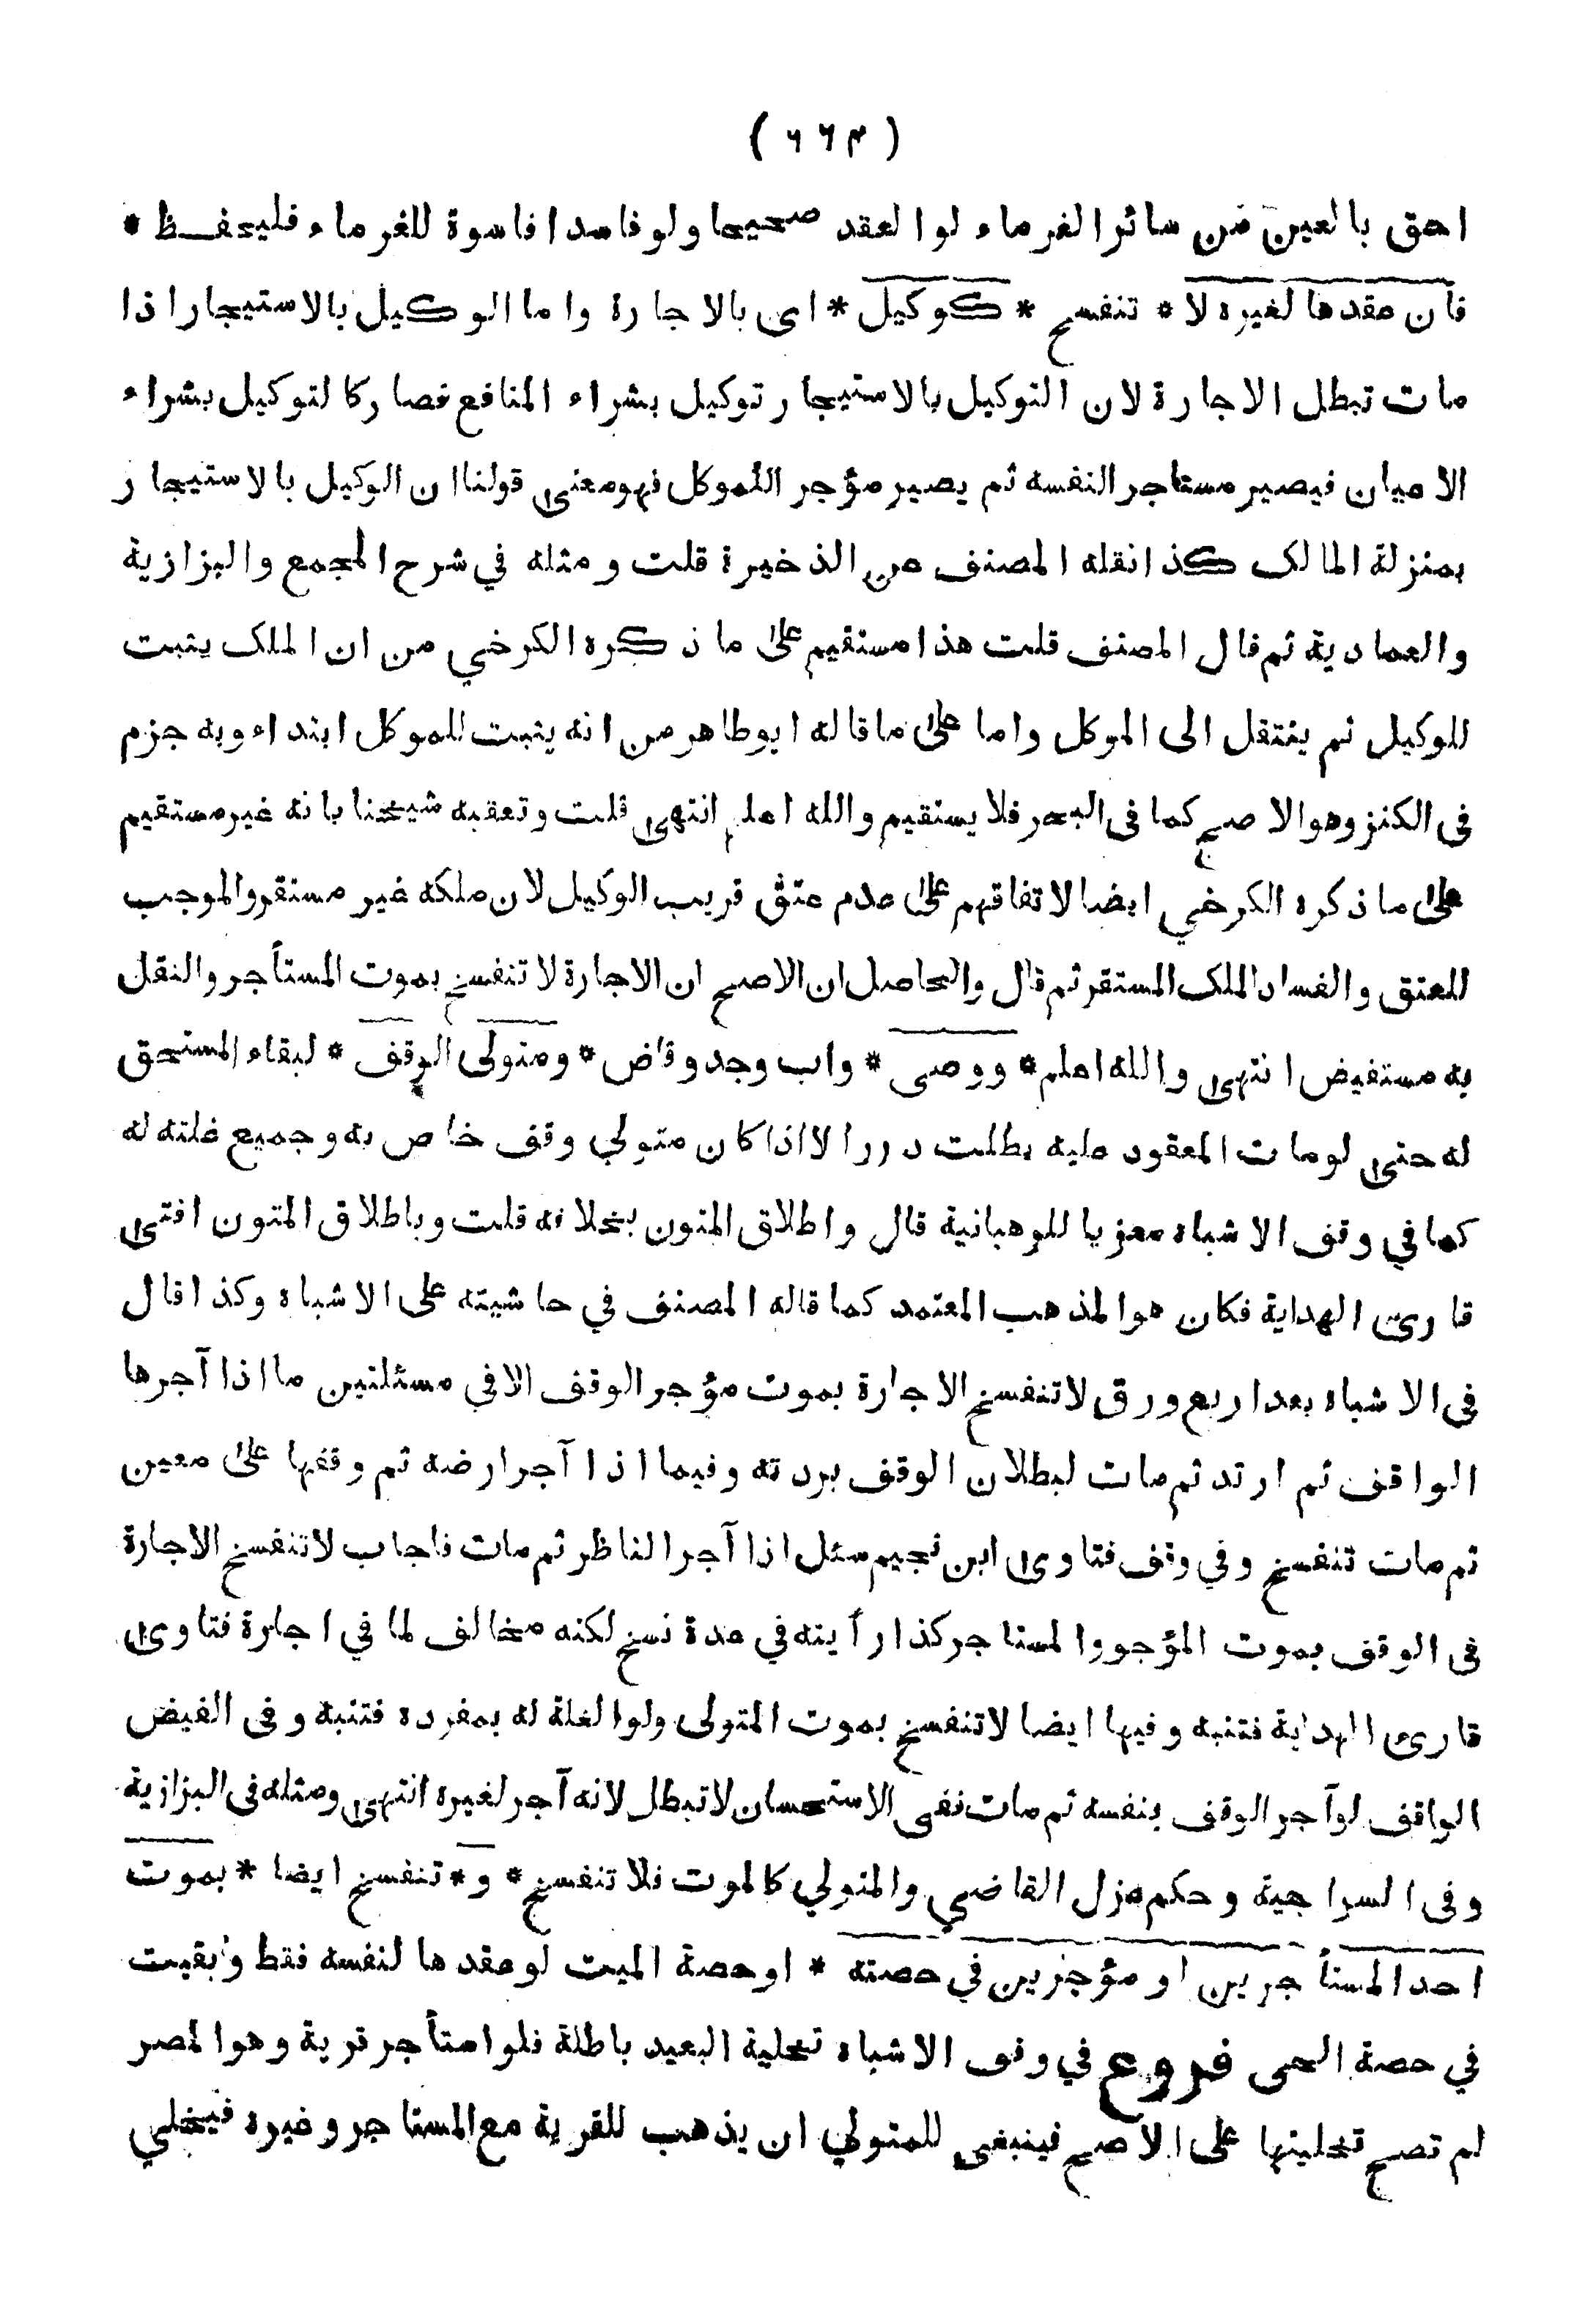 ( ٦٦٣ )
احق بالعين من سائر الغرماء لو العقد صحيحا ولو فاسدا فاسوة للغرماء فليحفظ *
فان عقدها لغيره لا * تنفسخ * كوكيل * اى بالاجارة واما الوكيل بالاستيجار اذا
مات تبطل الاجارة لان التوكيل بالاستيجار توكيل بشراء المنافع فصار كالتوكيل بشراء
الاعيان فيصير مستاجر النفسه ثم يصير مؤجر اللموكل فهو معنى قولنا ان الوكيل بالاستيجار
بمنزلة المالك كذا نقله المصنف عن الذخيرة قلت ومثله في شرح المجمع والبزازية
والعمادية ثم قال المصنف قلت هذا مستقيم على ما ذكره الكرخي من ان الملك يثبت
للوكيل ثم ينتقل الى الموكل واما على ما قاله ابو طاهر من انه يثبت للموكل ابتداء وبه جزم
فى الكنز وهو الاصح كما فى البحر فلا يستقيم والله اعلم انتهى قلت وتعقبه شيخنا بانه غير مستقيم
على ما ذكره الكرخي ايضا لاتفاقهم على عدم عتق قريب الوكيل لان ملكه غير مستقر والموجب
للعتق والفساد الملك المستقر ثم قال والحاصل ان الاصح ان الاجارة لا تنفسخ بموت المستأجر والنقل
به مستفيض انتهى والله اعلم * ووصى * واب وجد وقاض * ومتولى الوقف * لبقاء المستحق
له حتى لو مات المعقود عليه بطلت درر الا اذا كان متولي وقف خاص به وجميع غلته له
كما في وقف الاشباه معزيا للوهبانية قال واطلاق المتون بخلافه قلت وباطلاق المتون افتى
قارئ الهداية فكان هو المذهب المعتمد كما قاله المصنف في حاشيته على الاشباه وكذا قال
فى الاشباه بعد اربع ورق لا تنفسخ الاجارة بموت مؤجر الوقف الا في مسئلتين ما اذا آجرها
الواقف ثم ارتد ثم مات لبطلان الوقف بردته وفيما اذا آجر ارضه ثم وقفها على معين
ثم مات تنفسخ وفي وقف فتاوى ابن نجيم سئل اذا آجر الناظر ثم مات فاجاب لا تنفسخ الاجارة
فى الوقف بموت المؤجر والمستاجر كذا رأيته في عدة نسخ لكنه مخالف لما في اجارة فتاوى
قارئ الهداية فتنبه وفيها ايضا لا تنفسخ بموت المتولى ولو الغلة له بمفرده فتنبه وفى الفيض
الواقف لو آجر الوقف بنفسه ثم مات ففى الاستحسان لا تبطل لانه آجر لغيره انتهى ومثله فى البزازية
وفى السراجية وحكم عزل القاضي والمتولي كالموت فلا تنفسخ * و * تنفسخ ايضا * بموت
احد المستأجرين او مؤجرين في حصته * او حصة الميت لو عقدها لنفسه فقط وبقيت
في حصة الحى فروع في وقف الاشباه تخلية البعيد باطلة فلو استأجر قرية وهو المصر
لم تصح تخليتها على الاصح فينبغى للمتولي ان يذهب للقرية مع المستاجر وغيره فيخلي